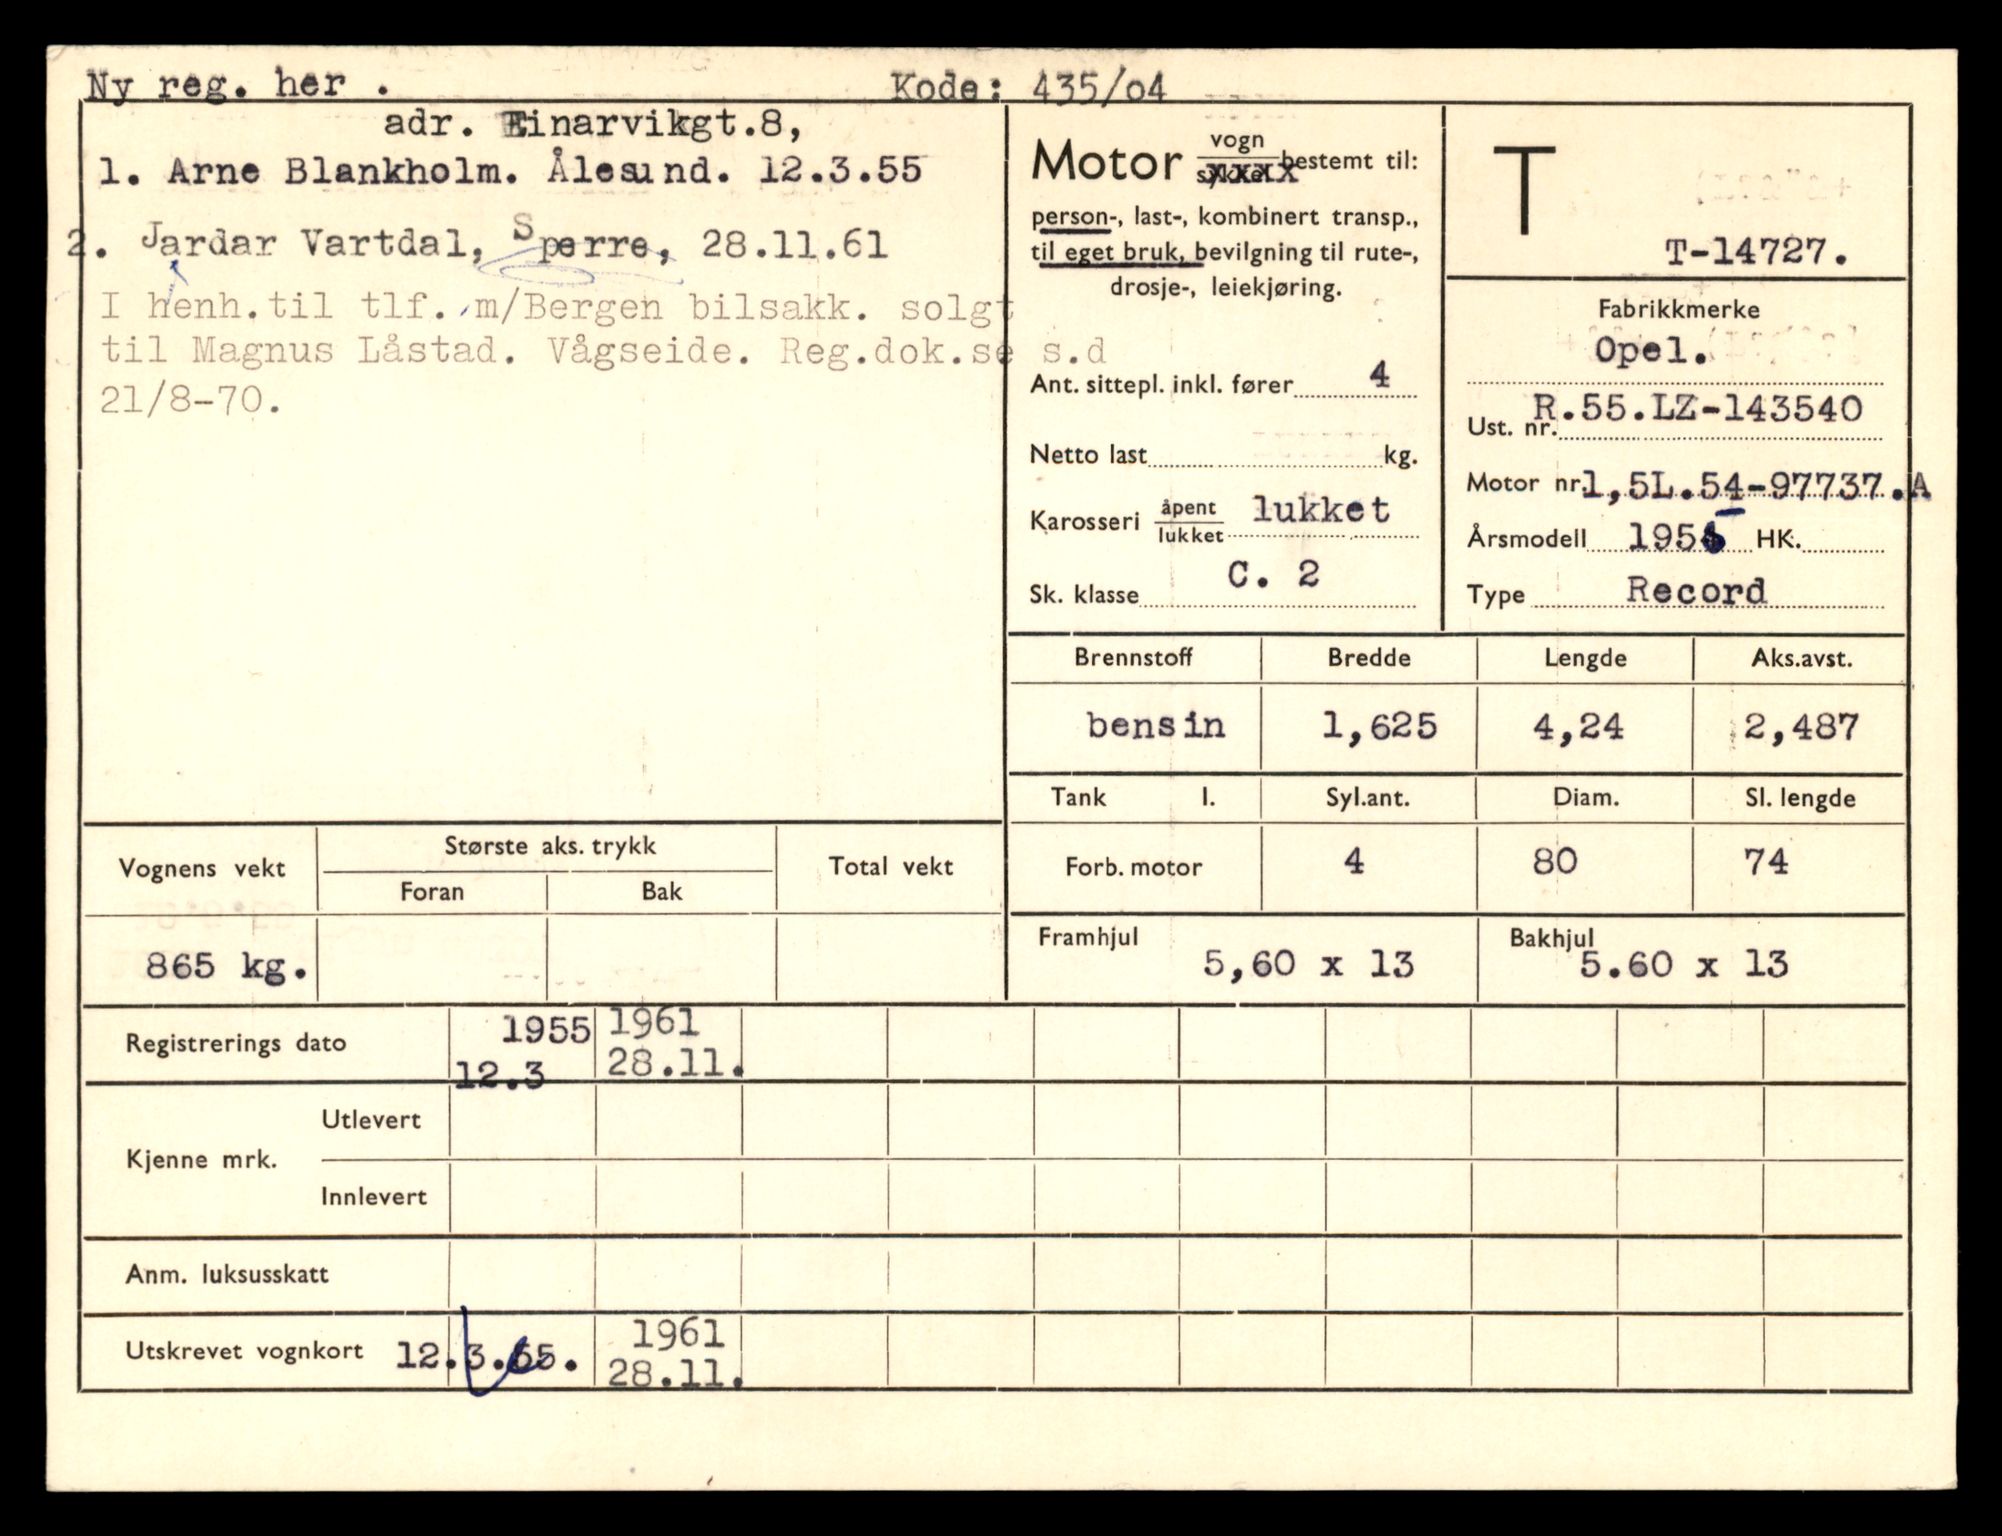 Ny reg. her . Kode: 435/o4
adr. Einarvikgt.8,
1. Arne Blankholm. Ålesund. 12.3.55
2. Jardar Vartdal, Sperre, 28.11.61
I henh.til tlf. m/Bergen bilsakk. solgt
til Magnus Låstad. Vågseide. Reg.dok.se s.d
21/8-70.
Motor vogn bestemt til:
person-, last-, kombinert transp.,
til eget bruk, bevilgning til rute-,
drosje-, leiekjøring.
Ant. sittepl. inkl. fører 4
Netto last kg.
Karosseri åpent lukket
lukket
Sk. klasse C. 2
T
T-14727.
Fabrikkmerke
Opel.
Ust. nr. R.55.LZ-143540
Motor nr. 1,5L.54-97737.A
Årsmodell HK.
Type Record
Brennstoff Bredde Lengde Aks.avst.
bensin 1,625 4,24 2,487
Tank l. Syl.ant. Diam. Sl. lengde
Forb. motor 4 80 74
Framhjul 5,60 x 13 Bakhjul 5.60 x 13
Vognens vekt Største aks. trykk Total vekt
Foran Bak
865 kg.
Registrerings dato 1955 1961
12.3 28.11.
Kjenne mrk. Utlevert
Innlevert
Anm. luksusskatt
Utskrevet vognkort 12.3.55. 1961
28.11.